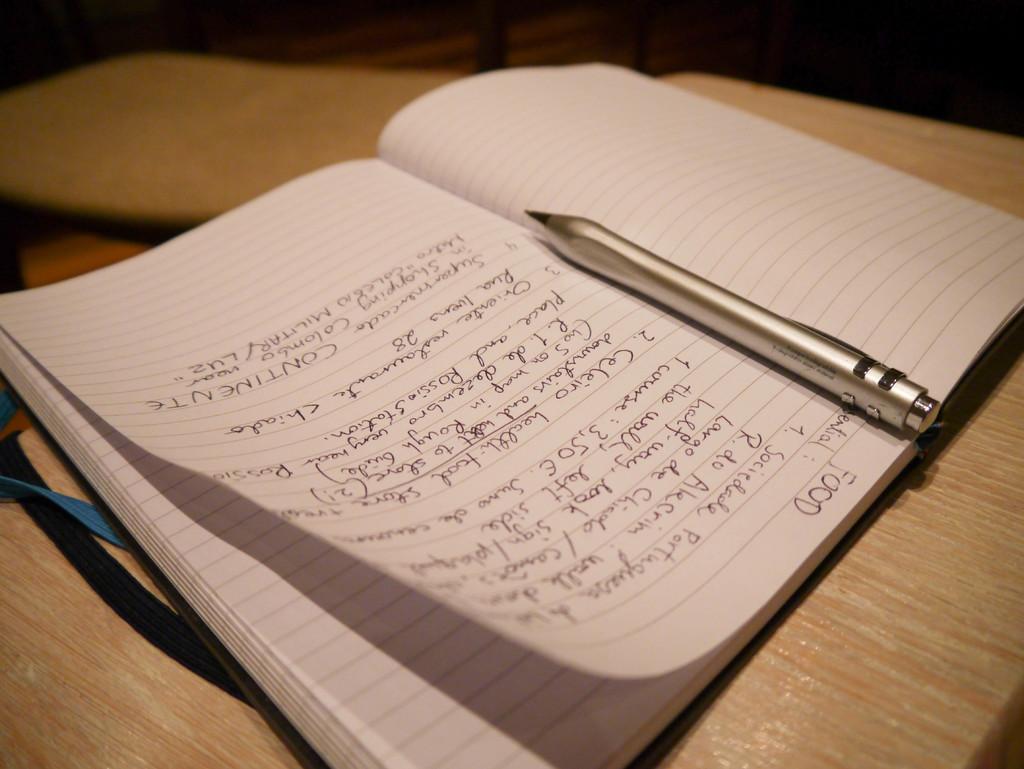 FOOD
1. Sociedade Portuguesa
R. do Alecrim: walk
Largo de Chiado /
half-way, look sign /
the wall, left side
1 course: 3,50 €. Sumo de
2. Celeiro health food store
downstairs and to store (2!)
(no 5 on map in Rough Guide)
R. 1. de dezembro very
place, and Rossio Station.
3 Oriente restaurante Chiado
Rua Ivens 28
4 Supermercado CONTINENTE
in Shopping Colombo near
Metro "COLEGIO MILITAR/LUZ"